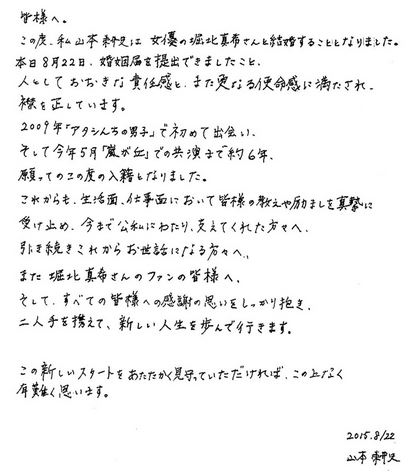 皆様へ。
この度、私 山本耕史は 女優の堀北真希さんと結婚することとなりました。
本日8月22日、婚姻届を提出できましたこと、
人としておおきな責任感と、また更なる使命感に満たされ、
襟を正しています。
2009年「アタシんちの男子」で初めて出会い、
そして今年5月「嵐が丘」での共演まで約6年、
願ってのこの度の入籍となりました。
これからも、生活面、仕事面において皆様の教えや励ましを真摯に
受け止め、今まで公私にわたり、支えてくれた方々へ、
引き続きこれからお世話になる方々へ、
また 堀北真希さんのファンの皆様へ、
そして、すべての皆様への感謝の思いをしっかり抱き、
二人手を携えて、新しい人生を歩んで行きます。
この新しいスタートをあたたかく見守っていただければ、この上なく
有難く思います。
2015.8/22
山本耕史